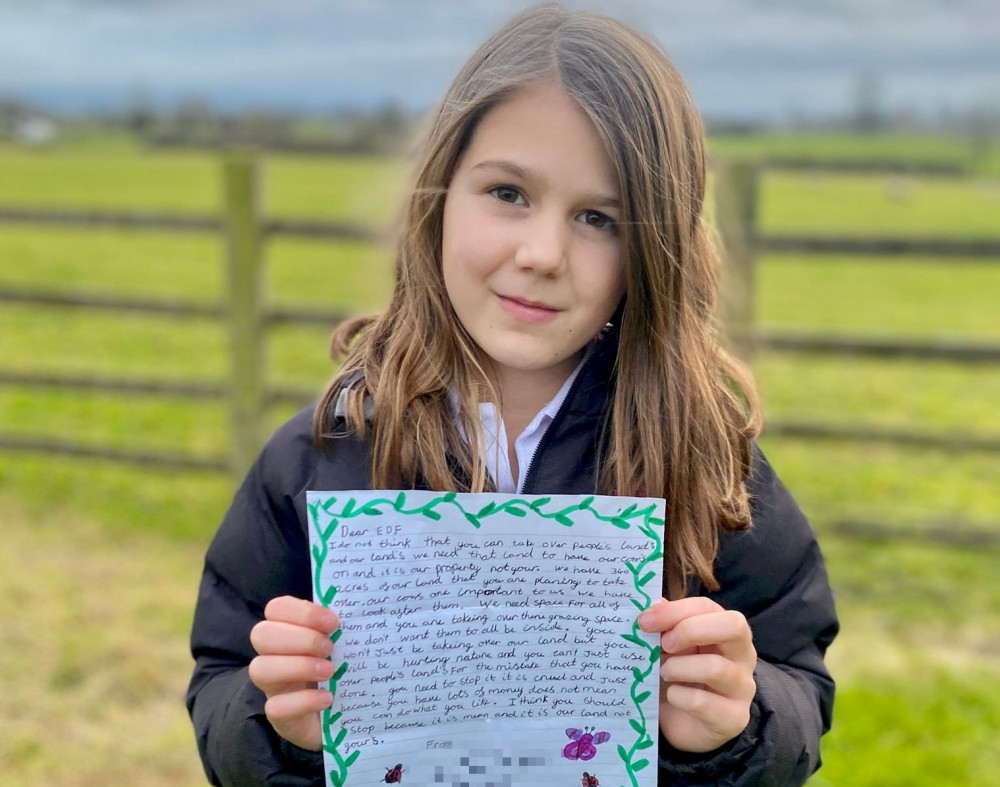 Dear EDF
I do not think that you can take over people's land's
and our land's we need that land to have our cow's
on and it is our property not your. We have 340
acres of our land that you are planing to take
over. our cows are important to us we have
to look after them. We need space for all of
them and you are taking over there grazing space.
We don't want them to all be inside. you
won't just be taking over our land but you
will be hurting nature and you can't just use
over people's land's for the mistake that you have
done. you need to stop it it is cruel and just
because you have lots of money does not mean
you can do what you like. I think you should
stop because it is mean and it is our land not
your's.
From